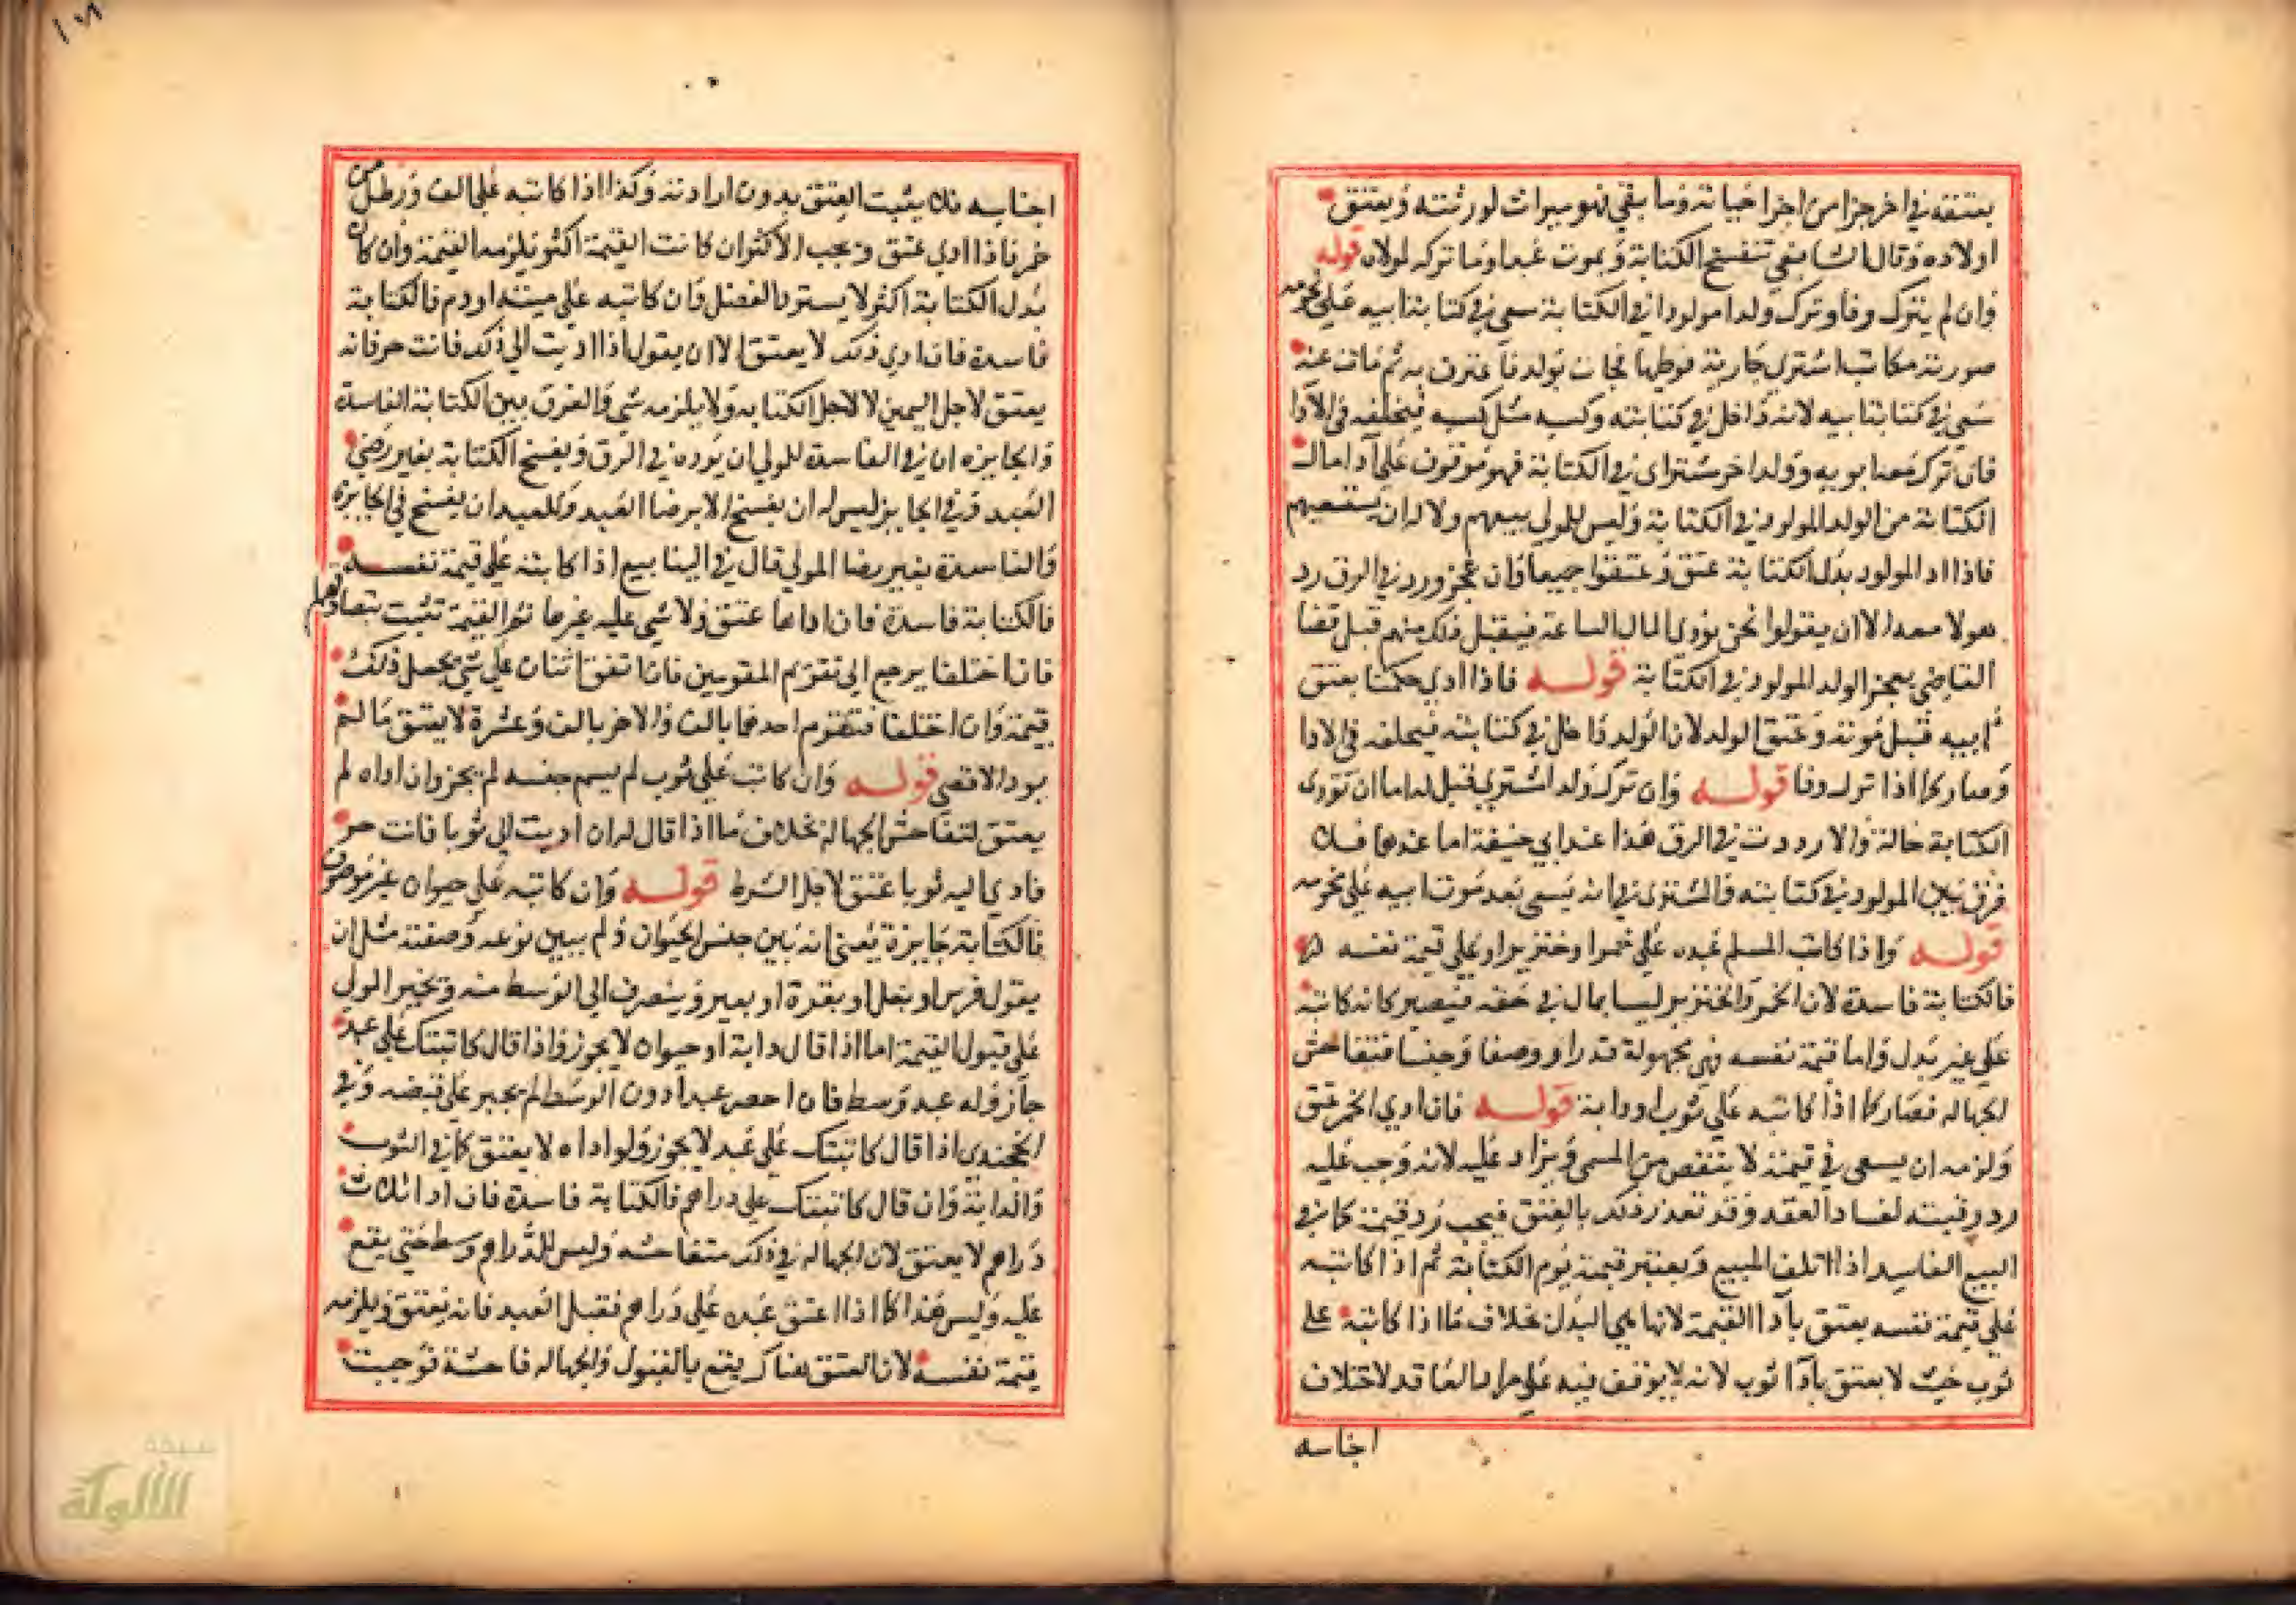 بعتقه في اخر جزا من اجزا حياته وما بقي فهو ميراث لورثته ويعتق
اولاده وقال الشافعي تنفسخ الكتابة ويموت عبدا وما تركه لمولاه قوله
وان لم يترك وفا وترك ولدا مولودا في الكتابة سعي في كتابة ابيه علي نجومه
صورته مكاتب اشتري جارية فوطيها فجات بولد فاعترف به ثم مات عنه
سعي في كتابة ابيه لانه داخل في كتابته وكسبه مثل كسبه فيخلفه في الادا
فان ترك معه ابويه وولدا اخر مشتراي في الكتابة فهو موقوف علي آدا مال
الكتابة من الولد المولود في الكتابة وليس للمولي بيعهم ولا له ان يستسعيهم
فاذا اد المولود بدل الكتابة عتق وعتقوا جميعا وان عجز ورد في الرق رد
هولا معه الا ان يقولوا نحن نودي المال الساعة فيقبل ذلك منهم قبل قضا
القاضي بعجز الولد المولود في الكتابة قوله فاذا ادي حكمنا بعتق
ابيه قبل موته وعتق الولد لان الولد داخل في كتابته فيخلفه في الادا
وصار كما اذا ترك وفا قوله وان ترك ولدا اشتري قيل له اما ان تودى
الكتابة حالة والا رددت في الرق هذا عند ابي حنيفة اما عندهما فلا
فرق بين المولود في كتابته والمشترى في انه يسعى بعد موت ابيه علي نجومه
قوله واذا كاتب المسلم عبده علي خمرا وخنزير او علي قيمة نفسه
فالكتابة فاسدة لان الخمر والخنزير ليسا بمال في حقه فيصير كانه كاتبه
علي غير بدل واما قيمة نفسه فهي مجهولة قدرا ووصفا وجنسا فتفاحش
لجهاله فصار كما اذا كاتبه علي ثوب او دابة قوله فان ادي الخمر عتق
ولزمه ان يسعى في قيمته لا ينقص من المسمى ويزاد عليه لانه وجب عليه
رد رقبته لفساد العقد وقد تعذر ذلك بالعتق فيجب رد قيمته كما في
البيع الفاسد اذا اتلف المبيع وتعتبر قيمته يوم الكتابة ثم اذا كاتبه
علي قيمة نفسه يعتق بآدا القيمة لانها هي البدل بخلاف ما اذا كاتبه على
ثوب حيث لا يعتق بآدا ثوب لانه لا يوقف فيه علي مراد العاقد لاختلاف
اجناسه
اجناسه فلا يثبت العتق بدون ارادته وكذا اذا كاتبه علي الف ورطل من
خمر فاذا ادي عتق ويجب الاكثر ان كانت القيمة اكثر يلزمه القيمة وان كان
بدل الكتابة اكثر لا يسترد الفضل وان كاتبه علي ميتة او دم فالكتابة
فاسدة فان ادي ذلك لا يعتق الا ان يقول اذا اديت الي ذلك فانت حر فانه
يعتق لاجل اليمين لا لاجل الكتابه ولا يلزمه شى والفرق بين الكتابة الفاسدة
والجايزه ان في الفاسدة للمولي ان يرده في الرق ويفسخ الكتابة بغير رضى
العبد وفي الجايز ليس له ان يفسخ الا برضا العبد وللعبد ان يفسخ في الجايزه
والفاسدة بغير رضا المولي قال في الينابيع اذا كاتبه علي قيمة نفسه
فالكتابة فاسدة فان اداها عتق ولا شي عليه غيرها ثم القيمة تثبت بتصادقهما
فان اختلفا يرجع الى تقويم المقومين فان اتفق اثنان علي شي يجعل ذلك
قيمة وان اختلفا فتقوم احدهما بالف والاخر بالف وعشرة لا يعتق ما لم
يود الاقصي قوله وان كاتب علي ثوب لم يسم جنسه لم يجز وان اداه لم
يعتق لتفاحش الجهالة بخلاف ما اذا قال له ان اديت الي ثوبا فانت حر
فادي اليه ثوبا عتق لاجل الشرط قوله وان كاتبه علي حيوان غير موصوف
فالكتابة جايزة يعني انه بين جنس الحيوان ولم يبين نوعه وصفته مثل ان
يقول فرس او بغل او بقرة او بعير وينصرف الى الوسط منه ويجبر المولي
علي قبول القيمة اما اذا قال دابة او حيوان لا يجوز واذا قال كاتبتك علي عبد
جاز وله عبد وسط فان احضر عبدا دون الوسط لم يجبر علي قبضه وفي
الخجندي اذا قال كاتبتك علي عبد لا يجوز ولو اداه لا يعتق كما في الثوب
والدابة وان قال كاتبتك على دراهم فالكتابة فاسدة فان ادا ثلاث
دراهم لا يعتق لان الجهالة في ذلك متفاحشه وليس للدراهم وسط حتي يقع
عليه وليس هذا كما اذا اعتق عبده علي دراهم فقبل العبد فانه يعتق ويلزمه
قيمة نفسه لان العتق هناك يقع بالقبول والجهاله فاحشة فوجبت